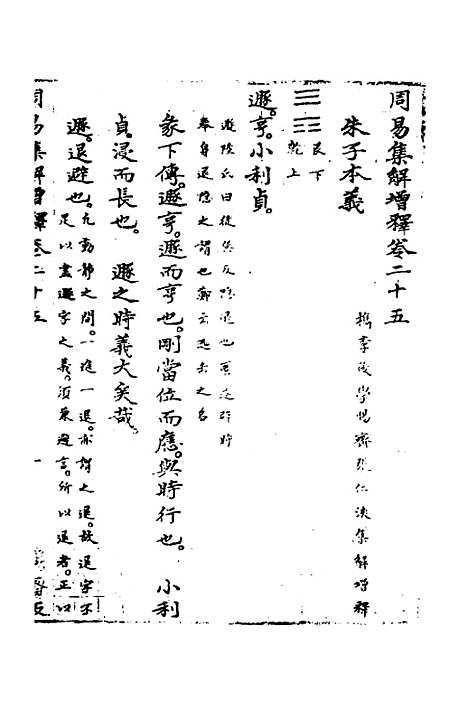 周易集解增釋卷二十五
檇李後學惕齋張仁浹集解增釋
朱子本義
艮下
乾上
遯。亨。小利貞。
遯陸氏曰徒遜反隱退也匿迹避時
奉身退隱之謂也鄭云逃去之名
彖下傳。遯亨。遯而亨也。剛當位而應。與時行也。 小利
貞。浸而長也。 遯之時義大矣哉。
遯。退避也。凡動靜之間。一進一退。亦謂之退。故退字不
足以盡遯字之義。須兼避言。所以退者。正以
周易集解增釋卷二十五 一